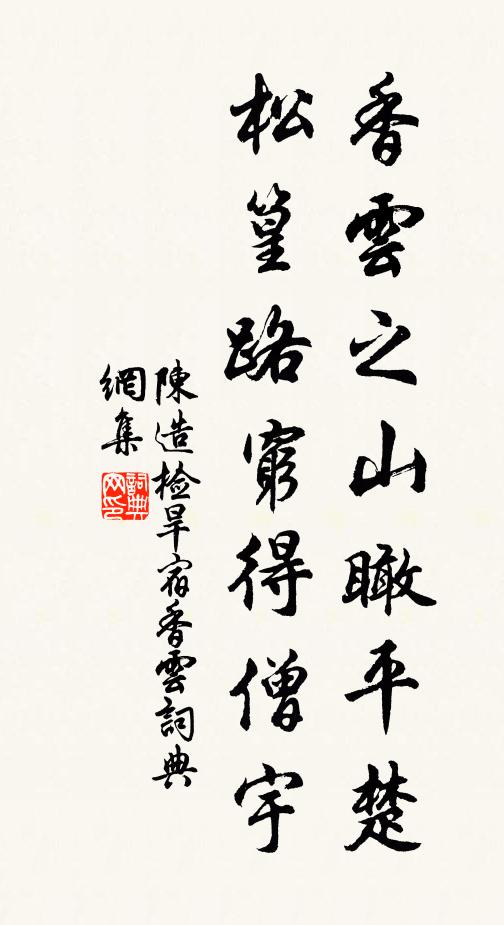 香雲之山瞰平楚
松篁路窮得僧宇
陳造检旱宿香雲詞典
網集
詞典网印